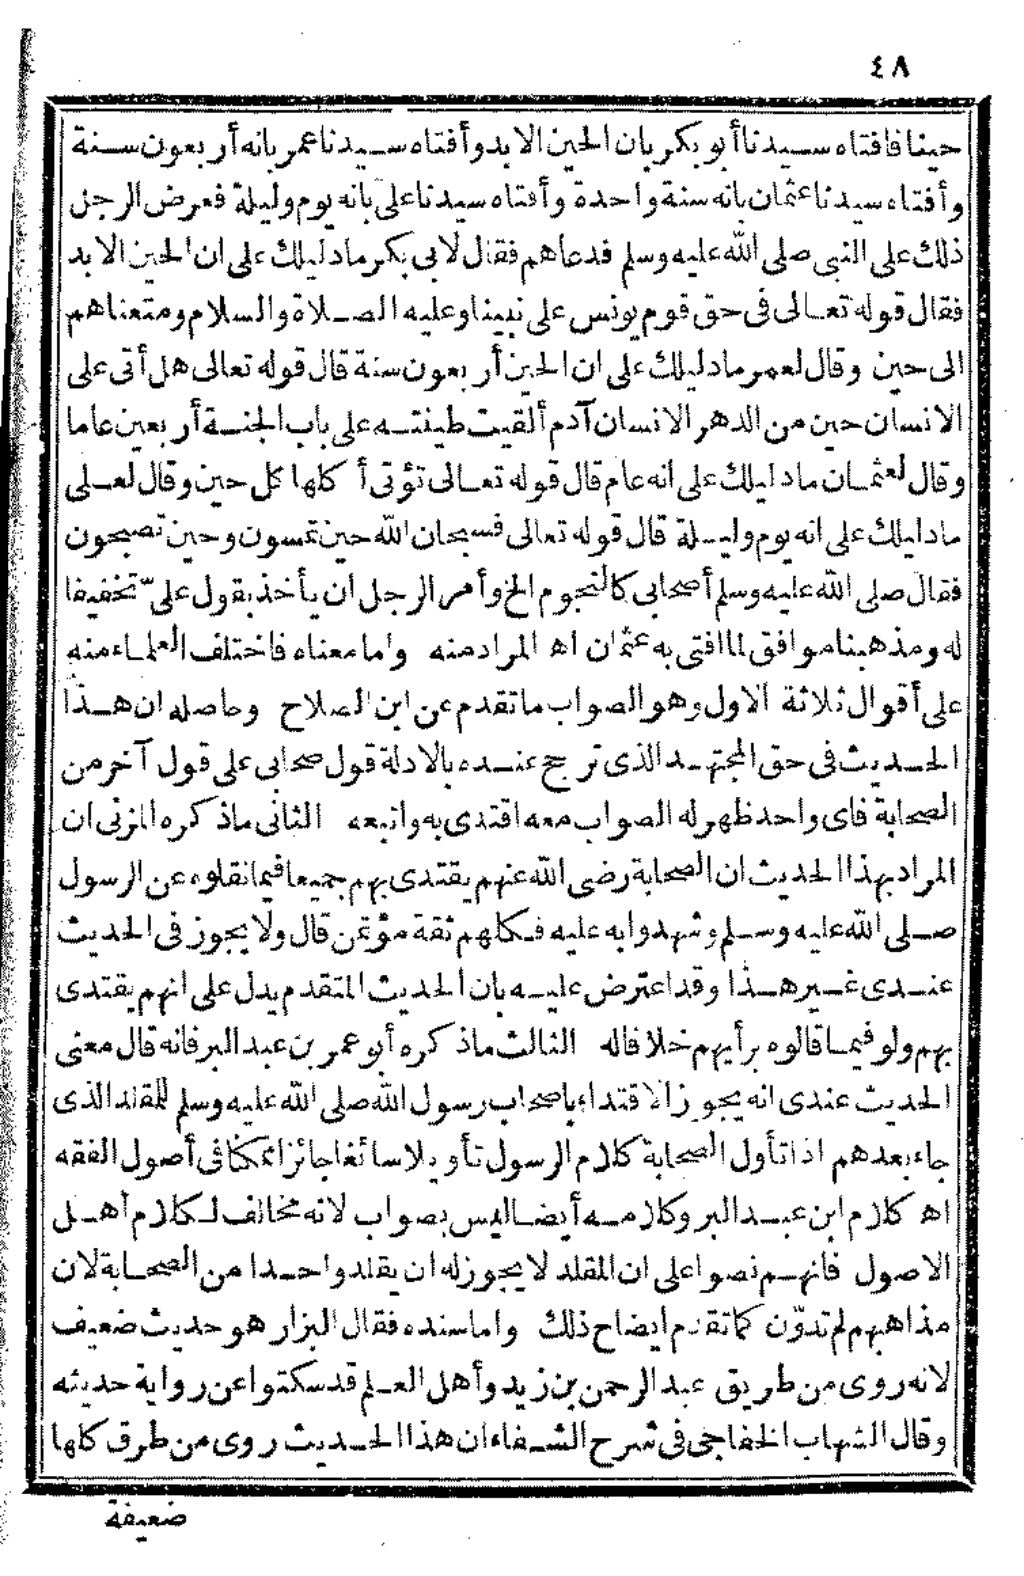 ٤٨
حينا فافتاه سيدنا أبو بكر بان الحين الابد وأفتاه سيدنا عمر بانه أربعون سنة
وأفتاه سيدنا عثمان بانه سنة واحدة وأفتاه سيدنا على بانه يوم وليلة فعرض الرجل
ذلك على النبى صلى الله عليه وسلم فدعاهم فقال لابى بكر مادليلك على ان الحين الابد
فقال قوله تعالى فى حق قوم يونس على نبينا وعليه الصلاة والسلام ومتعناهم
الى حين وقال لعمر مادليلك على ان الحين أربعون سنة قال قوله تعالى هل أتى على
الانسان حين من الدهر الانسان آدم ألقيت طينته على باب الجنة أربعين عاما
وقال لعثمان مادليلك على انه عام قال قوله تعالى تؤتى أكلها كل حين وقال لعلى
مادليلك على انه يوم وليلة قال قوله تعالى فسبحان الله حين تمسون وحين تصبحون
فقال صلى الله عليه وسلم أصحابى كالنجوم الخ وأمر الرجل ان يأخذ بقول علىّ تخفيفا
له ومذهبنا موافق لما افتى به عثمان اه المراد منه وامامعناه فاختلف العلماء منه
على أقوال ثلاثة الاول وهو الصواب ماتقدم عن ابن الصلاح وحاصله ان هذا
الحديث فى حق المجتهد الذى ترجح عنده بالادلة قول صحابى على قول آخر من
الصحابة فاى واحد ظهر له الصواب معه اقتدى به واتبعه الثانى ماذكره المزنى ان
المراد بهذا الحديث ان الصحابة رضى الله عنهم يقتدى بهم جميعا فيما نقلوه عن الرسول
صلى الله عليه وسلم وشهدوا به عليه فكلهم ثقة مؤتمن قال ولا يجوز فى الحديث
عندى غير هذا وقد اعترض عليه بان الحديث المتقدم يدل على انهم يقتدى
بهم ولو فيما قالوه برأيهم خلافا له الثالث ماذكره أبو عمر بن عبد البر فانه قال معنى
الحديث عندى انه يجوز الاقتداء باصحاب رسول الله صلى الله عليه وسلم للمقلد الذى
جاء بعدهم اذا تأول الصحابة كلام الرسول تأويلا سائغا جائزا ممكنا فى أصول الفقه
اه كلام ابن عبد البر وكلامه أيضا ليس بصواب لانه مخالف لكلام أهل
الاصول فانهم نصوا على ان المقلد لا يجوز له ان يقلد واحدا من الصحابة لان
مذاهبهم لم تدوّن كما تقدم ايضاح ذلك واما سنده فقال البزار هو حديث ضعيف
لانه روى من طريق عبد الرحمن بن زيد وأهل العلم قد سكتوا عن رواية حديثه
وقال الشهاب الخفاجى فى شرح الشفاء ان هذا الحديث روى من طرق كلها
ضعيفة